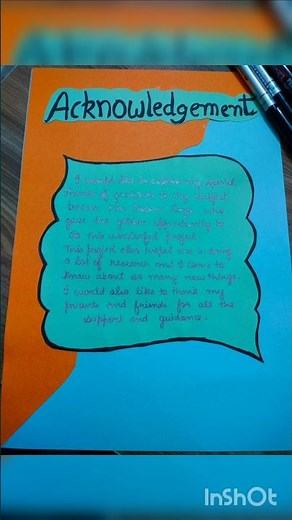 Acknowledgement
I would like to express my special
thanks of gratitude to my subject
teacher who
gave the golden opportunity to
do this wonderful project.
This project also helped me in doing
a lot of research and I came to
know about so many new things.
I would also like to thank my
parents and friends for all the
support and guidance.
InShOt